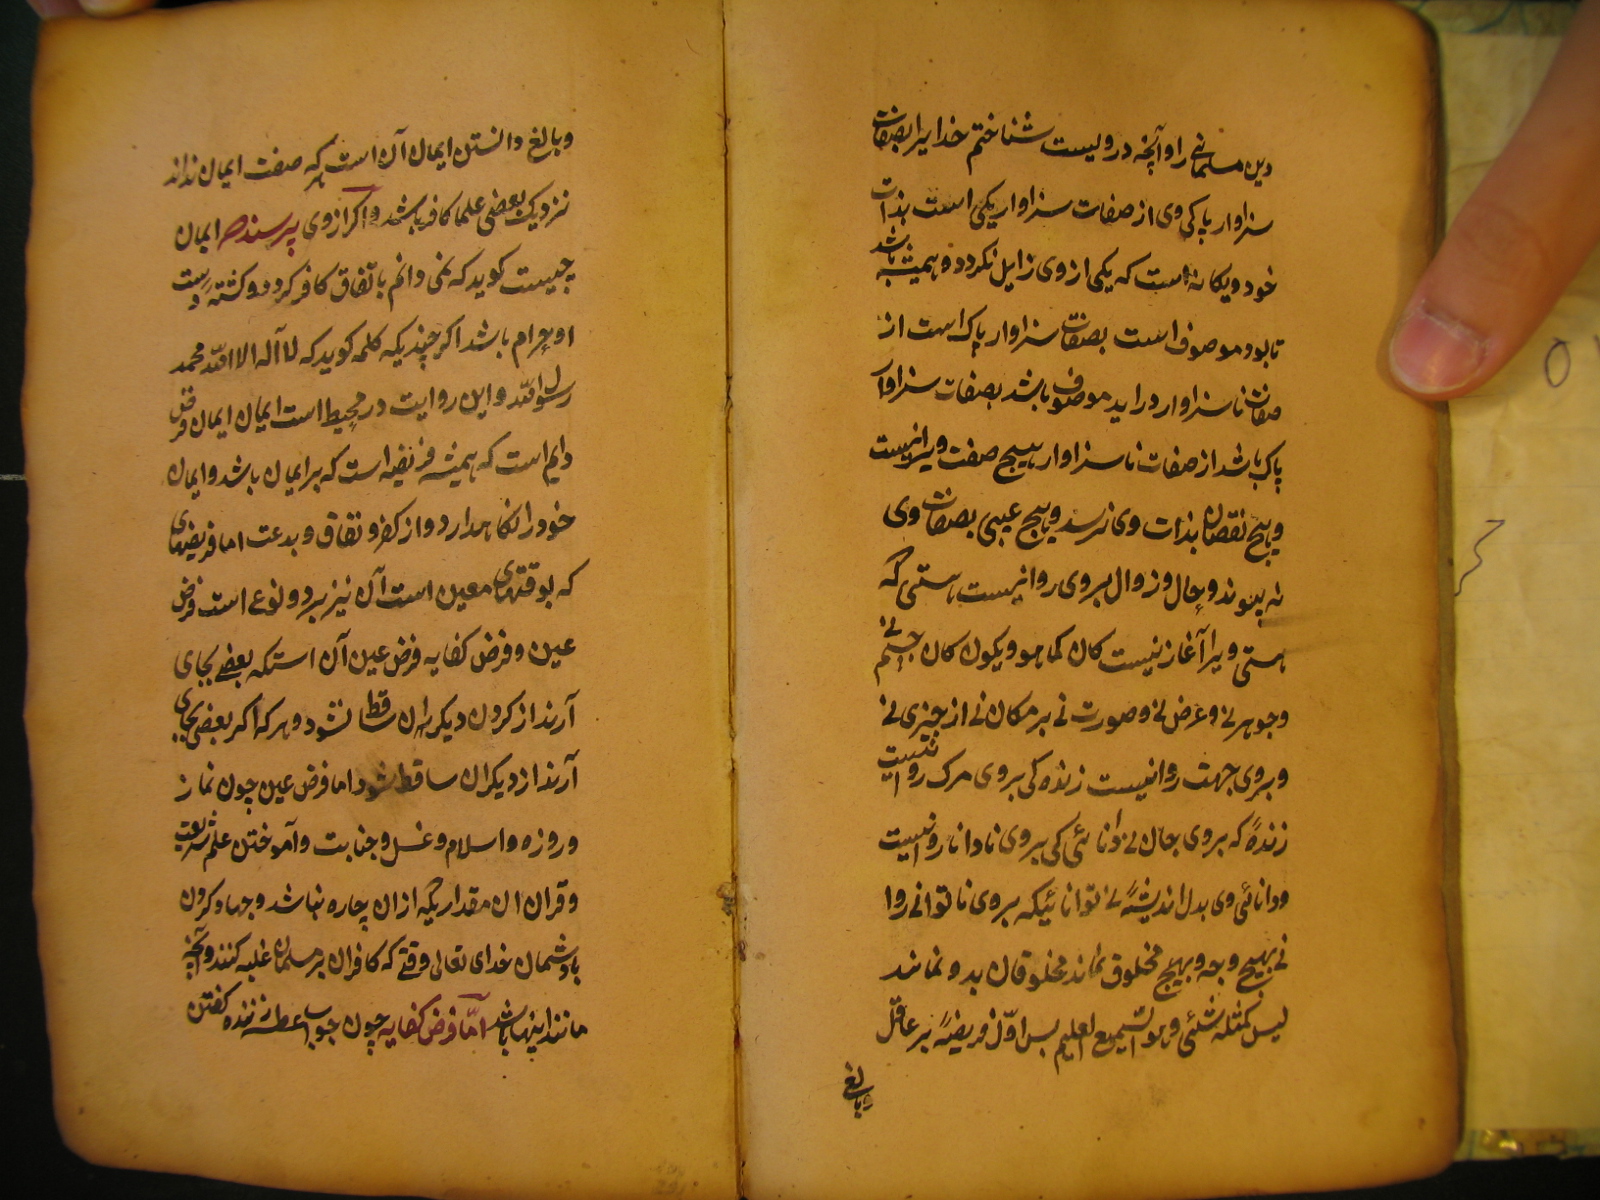 دین مسلمانی را و آنچه درویست شناختم خدایرا بصفات
سزاوار پاکی وی از صفات سزاوار یکی است بذات
خود و یکانه است که یکی از وی زایل نکردد و همیشه باشد
تا بود موصوف است بصفات سزاوار پاک است از
صفات ناسزاوار در ابد موصوف باشد بصفات سزاوار
پاک باشد از صفات ناسزاوار هیچ صفت ویرا نیست
و هیچ نقصان بذات وی نرسد و هیچ عیبی بصفات وی
نه پیوندد و حال و زوال بروی روا نیست هستی که
هستی ویرا آغاز نیست کان کما هو و یکون کان جسم نی
و جوهر نی و عرض نی و صورت نی بر مکان نی از چیزی نی
و بروی جهت روا نیست زنده کی بروی مرک روا نیست
زنده که بروی بجان نی دانائی کی بروی نادانا روا نیست
و دانائی وی بدل اندیشهٔ نی توانائیکه بروی ناتوانی روا
نی بهیچ وجه و بهیچ مخلوق نماند مخلوقان بدو نمانند
لیس کمثله شئی و هو السمیع العلیم پس اوّل فریضهٔ بر عاقل
و بالغ
و بالغ دانستن ایمان آن است هر که صفت ایمان نداند
نزدیک بعضی علما کافر باشد و اکر از وی پرسند که ایمان
چیست کوید که نمی دانم باتفاق کافر کردد و کشتهٔ دست
او حرام باشد اکر چندیکه کلمه کوید که لا آله الا الله محمد
رسول الله و این روایت در محیط است ایمان ایمان فرض
دایم است که همیشه فریضه است که بر ایمان باشد و ایمان
خود را نکاهدارد و از کفر و نفاق و بدعت اما فریضهای
که بوقتهای معین است آن نیز بر دو نوع است فرض
عین و فرض کفایه فرض عین آن استکه بعضی بجای
آرند از کردن دیکران ساقط نشود و هر که اکر بعضی بجای
آرند از دیکران ساقط نشود اما فرض عین چون نماز
و روزه و اسلام و غسل و جنابت و آموختن علم شریعت
و قران ان مقدار یکه ازان چاره نباشد و جهاد کردن
با دشمنان خدای تعالی وقتی که کافران بر مسلمانان غلبه کنند و آنچه
مانند اینها باشد امّا فرض کفایه چون جواب عطسه زننده کفتن